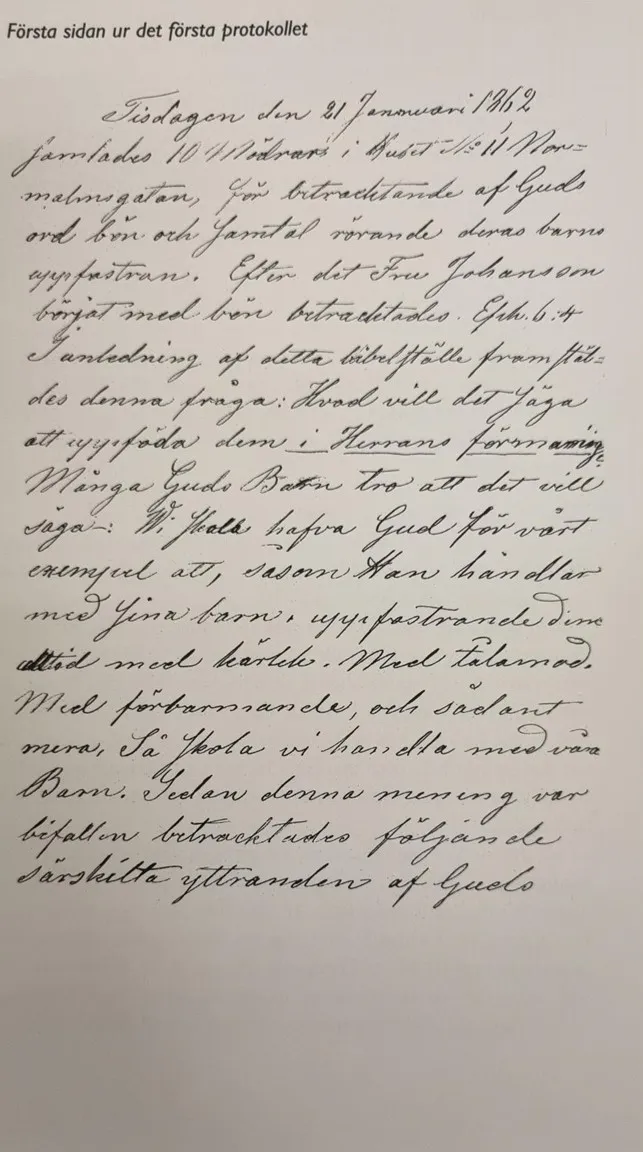 Första sidan ur det första protokollet
Tisdagen den 21 Januari 1862
samlades 10 Mödrar i Huset No 11 Nor=
malmsgatan, för betracktande af Guds
ord bön och samtal rörande deras barns
uppfostran. Efter det Fru Johansson
börjat med bön betracktades. Eph. 6:4
I anledning af detta bibelställe framstäl=
des denna fråga: Hvad vill det säga
att uppföda dem i Herrans förmaning?
Många Guds Barn tro att det vill
säga-: Wi skola hafva Gud för vårt
exempel att, såsom Han handlar
med sina barn, uppfostrande dem
alltid med kärlek. Med Tålamod.
Med förbarmande, och sådant
mera, Så skola vi handla med våra
Barn. Sedan denna mening var
bifallen betracktades följande
särskilta yttranden af Guds